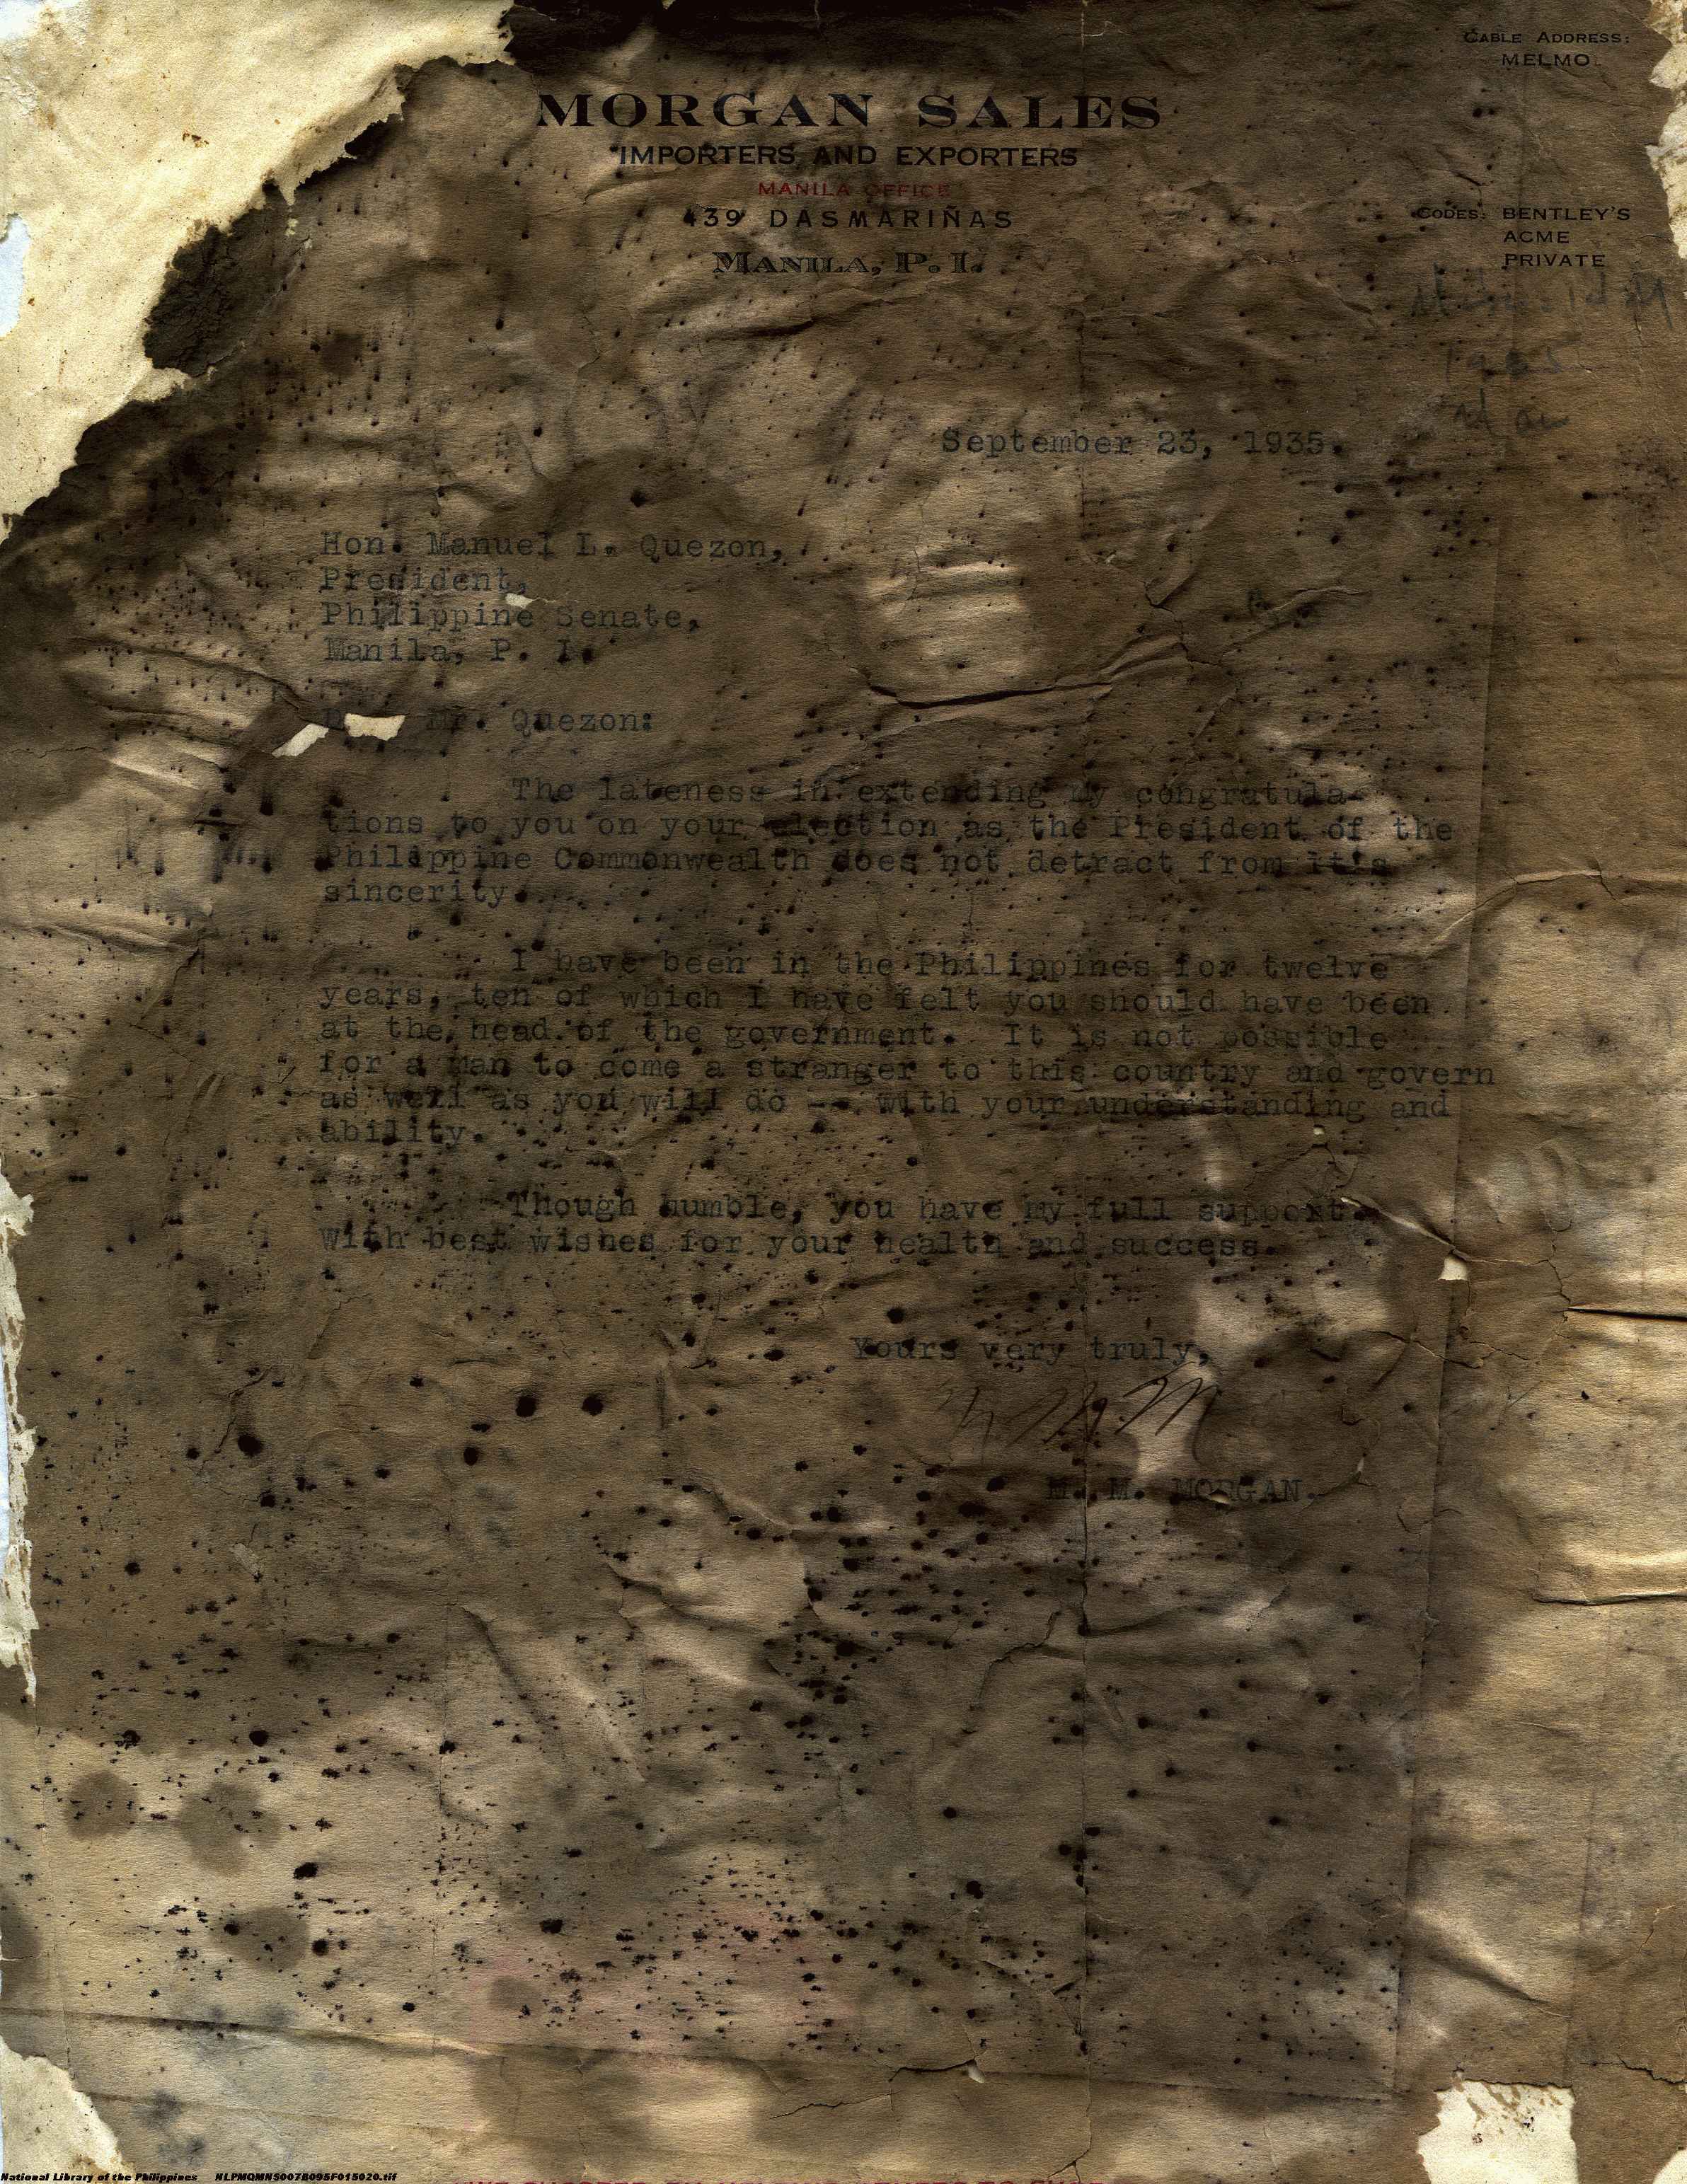 CABLE ADDRESS:
MELMO
MORGAN SALES
IMPORTERS AND EXPORTERS
MANILA OFFICE
439 DASMARIÑAS
MANILA, P. I.
CODES: BENTLEY'S
ACME
PRIVATE
September 23, 1935.
Hon. Manuel L. Quezon,
President,
Philippine Senate,
Manila, P. I.
Mr. Quezon:
The lateness in extending my congratula-
tions to you on your election as the President of the
Philippine Commonwealth does not detract from it's
sincerity.
I have been in the Philippines for twelve
years, ten of which I have felt you should have been
at the head of the government. It is not possible
for a man to come a stranger to this country and govern
as well as you will do -- with your understanding and
ability.
Though humble, you have my full support.
With best wishes for your health and success.
Yours very truly,
M. M. MORGAN.
National Library of the Philippines NLPMQMNS007B095F015020.tif